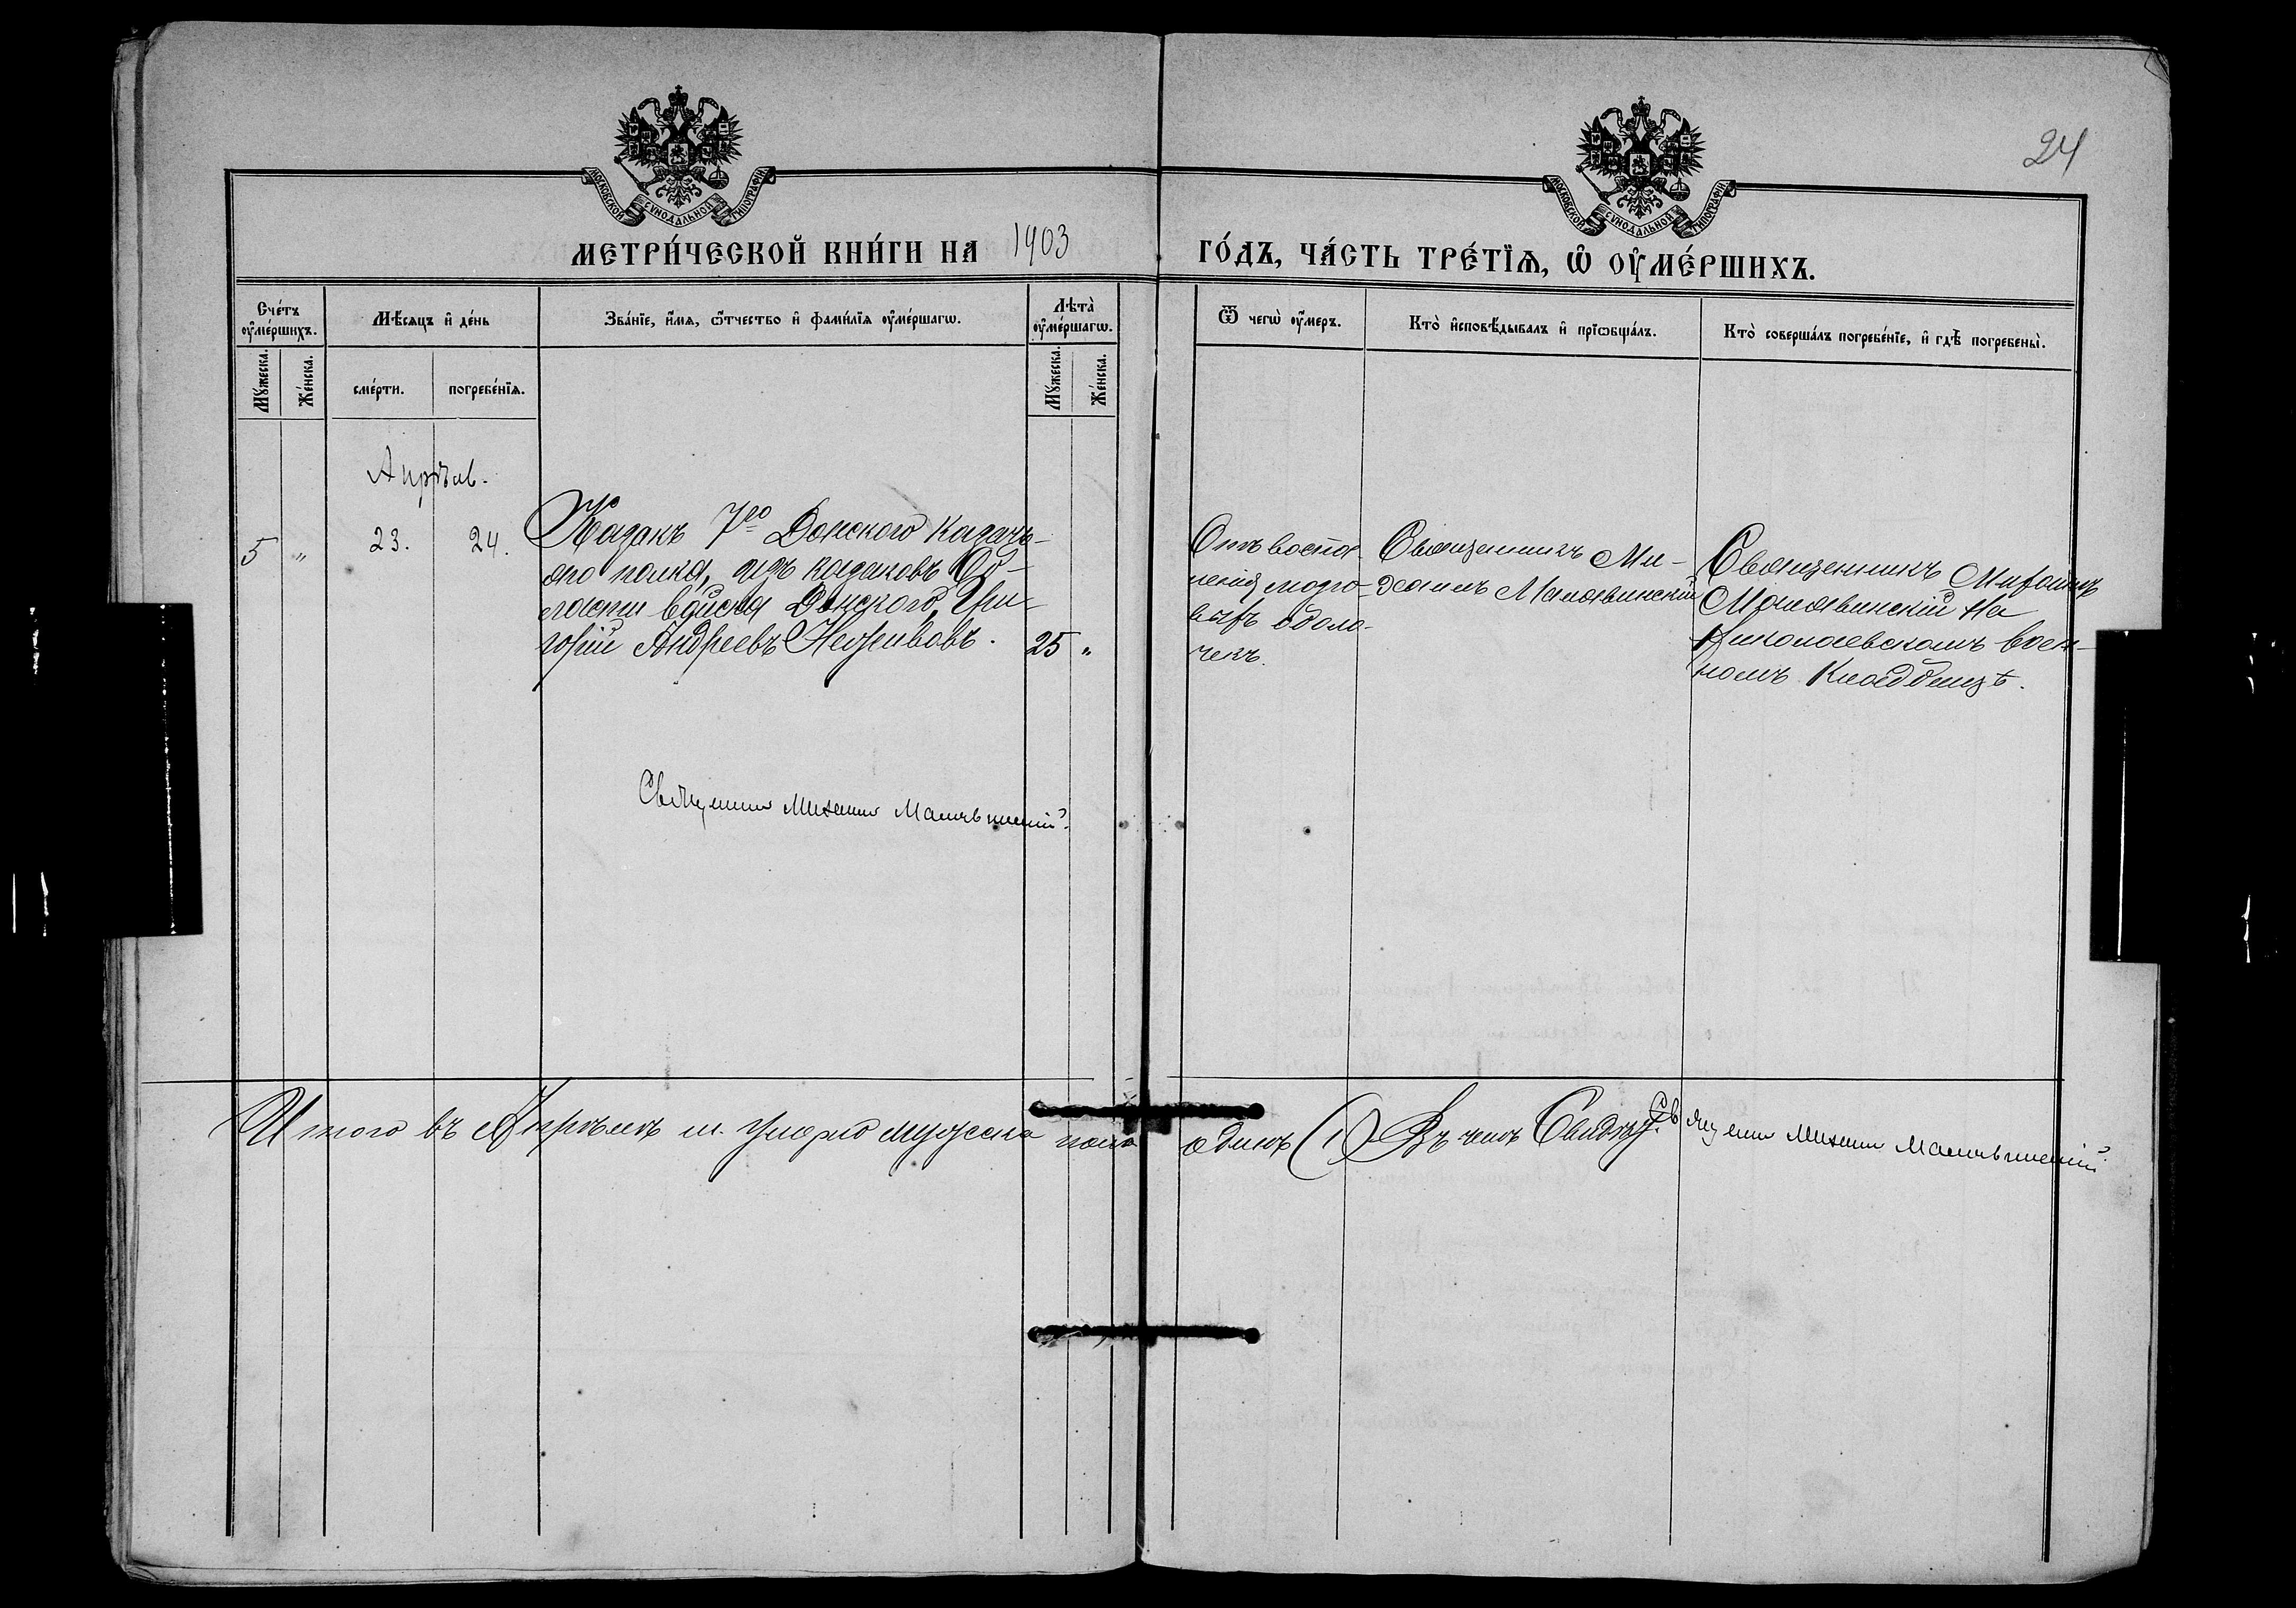 24
МОСКОВСКОЙ СѴНОДАЛЬНОЙ ТИПОГРАФІИ
МОСКОВСКОЙ СѴНОДАЛЬНОЙ ТИПОГРАФІИ
МЕТРИ́ЧЕСКОЙ КНИ́ГИ НА 1903 ГО́ДЪ, ЧА́СТЬ ТРЕ́ТЇѦ, Ѡ҆ ОУ҆МЕ́РШИХЪ.
Сче́тъ оу҆ме́ршихъ.
Мꙋ́жеска.
Же́нска.
Мѣ́сѧцъ и҆ де́нь
сме́рти.
погребе́нїѧ.
Зва́нїе, и҆́мѧ, ѻ҆́тчество и҆ фами́лїѧ оу҆ме́ршагѡ.
Лѣта̀ оу҆ме́ршагѡ.
Мꙋ́жеска.
Же́нска.
Ѿ чегѡ̀ оу҆́меръ.
Кто̀ и҆сповѣ́дывалъ и҆ прїѡбща́лъ.
Кто̀ соверша́лъ погребе́нїе, и҆ гдѣ̀ погребены̀.
Апрѣль.
5 " 23. 24.
Казакъ 7го Донского Казачь-
яго полка, изъ казаковъ Об-
ласти войска Донского, Гри-
горій Андреевъ
25 "
Отъ воспа-
ленія мозго-
выхъ оболо-
чекъ.
Священникъ Ми-
хаилъ Малявинскій
Священникъ Михаилъ
Малявинскій на
Николаевскомъ воен-
номъ Кладбищѣ.
Священникъ Михаилъ Малявинскій.
Итого въ Апрѣлѣ м. умерло мужеска пола одинъ (1) Въ чемъ Свидѣт. Священникъ Михаилъ Малявинскій